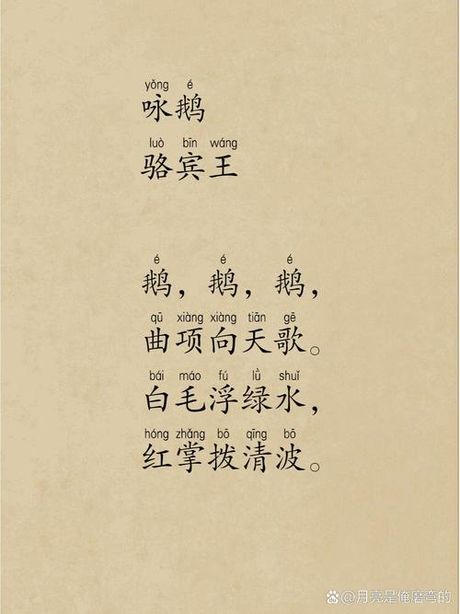 yǒng é
咏鹅
luò bīn wáng
骆宾王
é é é
鹅，鹅，鹅，
qū xiàng xiàng tiān gē
曲项向天歌。
bái máo fú lǜ shuǐ
白毛浮绿水，
hóng zhǎng bō qīng bō
红掌拨清波。
@月亮是俺磨弯的